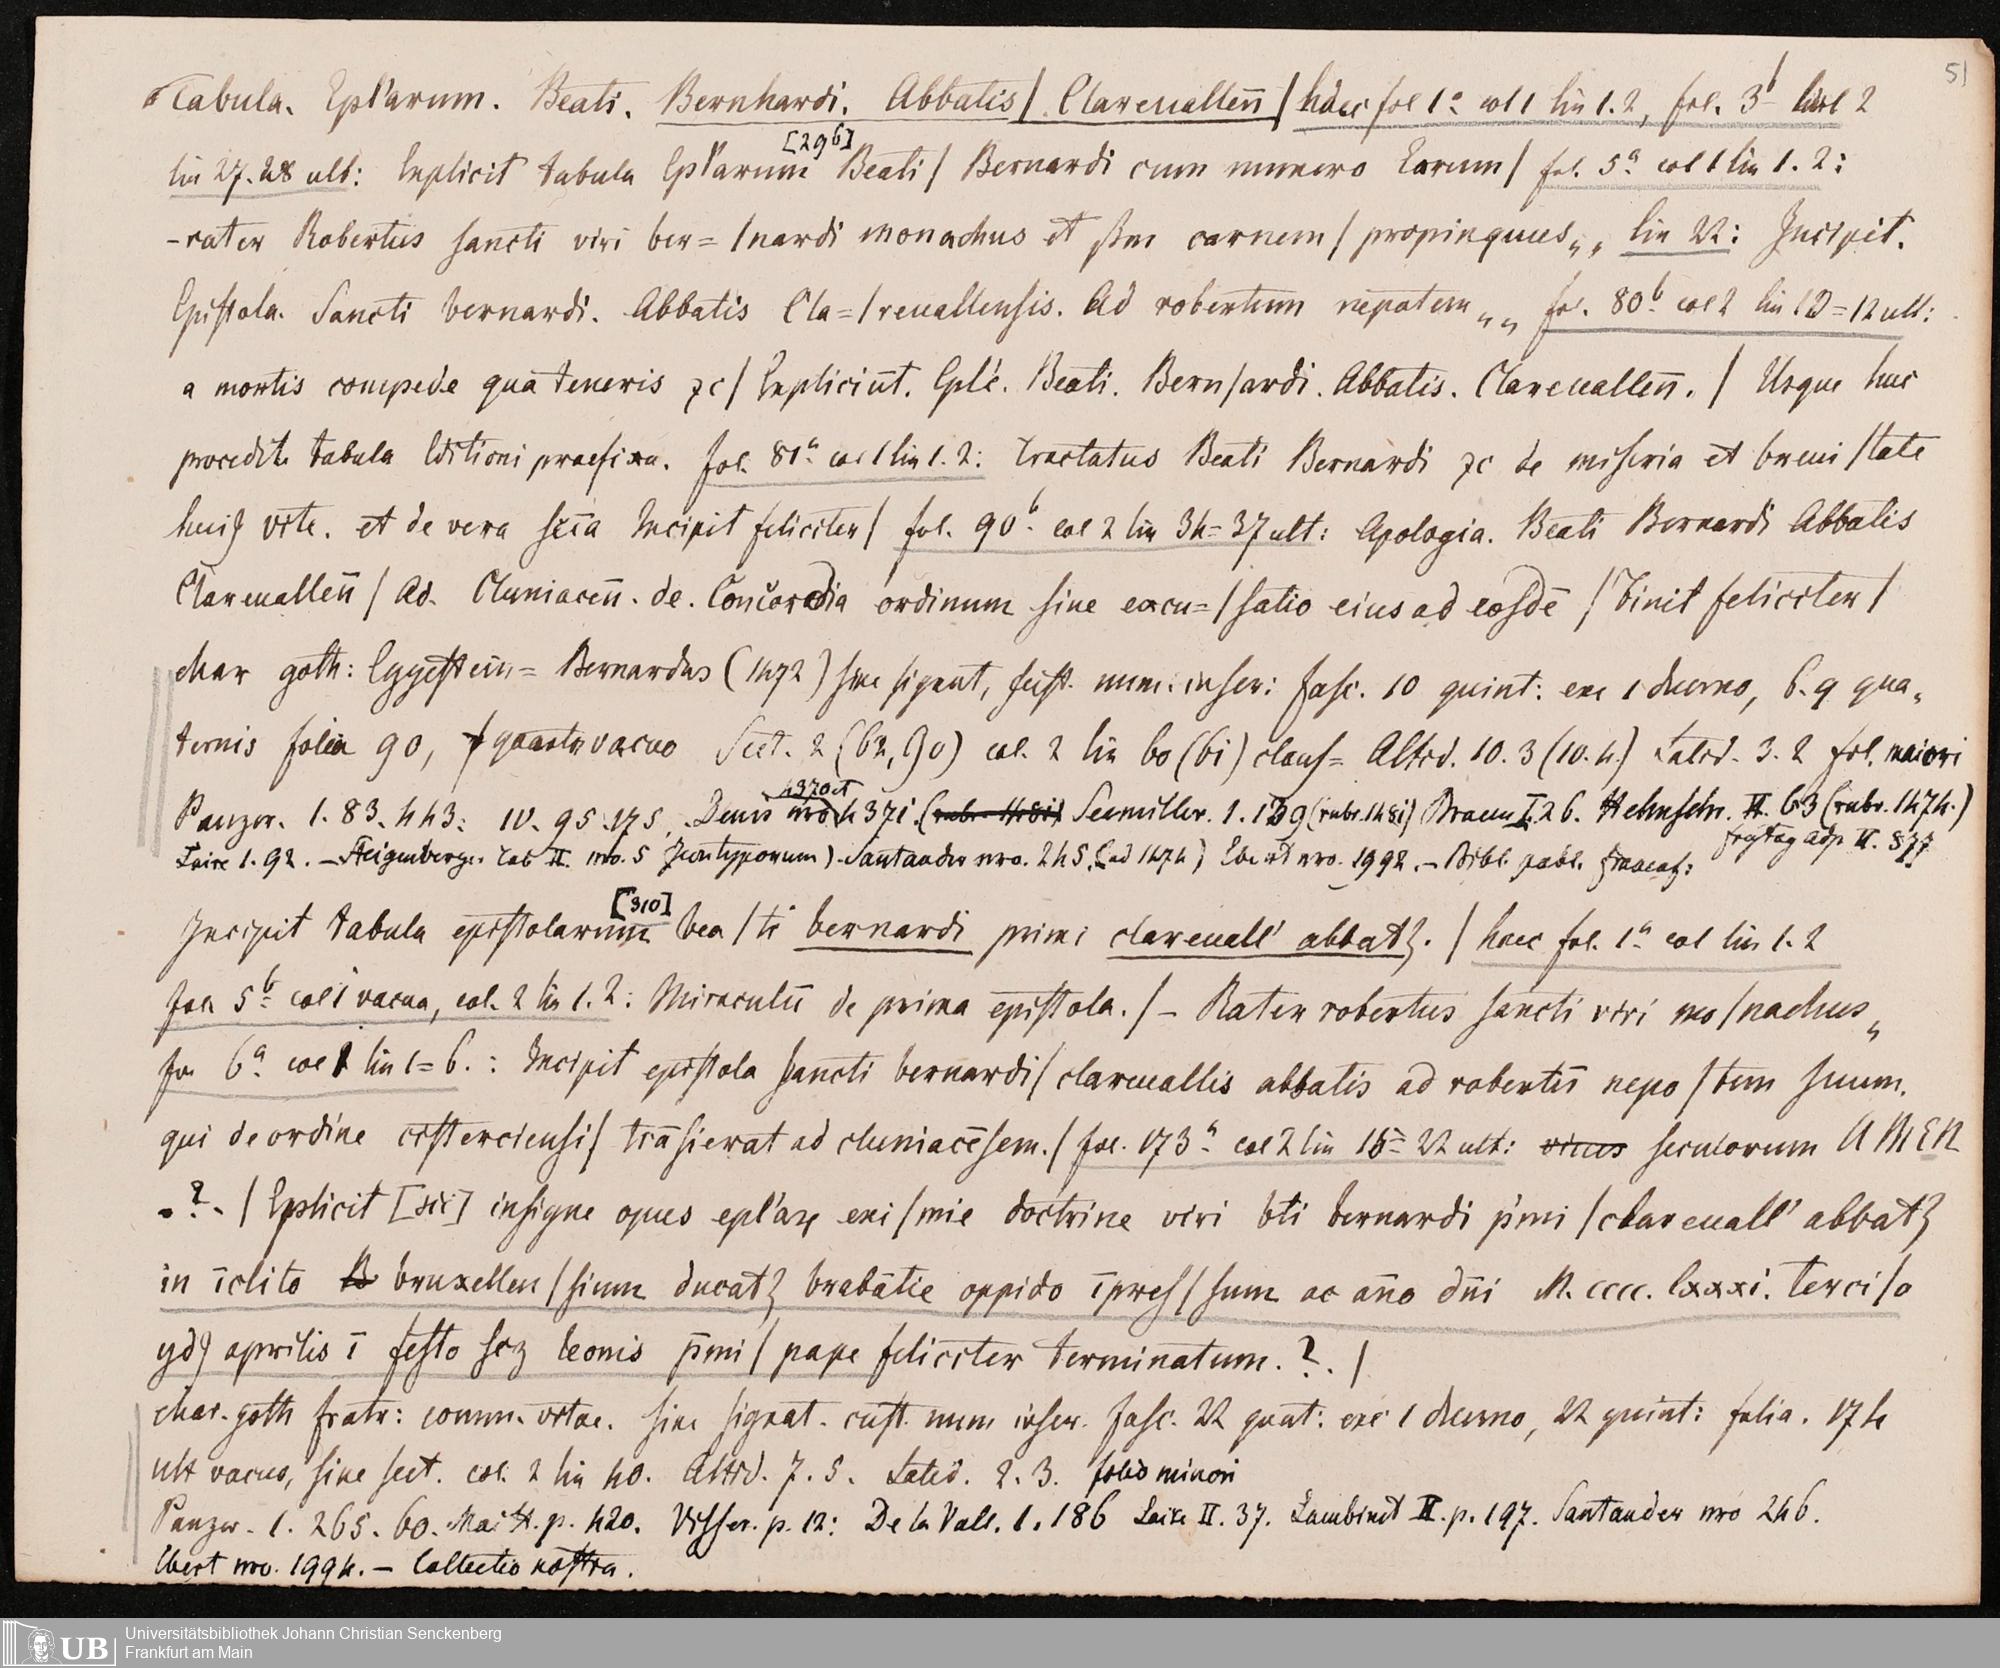 51
Tabula. Epl'arum. Beati. Bernhardi. Abbatis / Clareuallen̄ / haec fol 1a col 1 lin 1.2, fol. 3b col 2
lin 27.28 ult: Explicit tabula Epl'arum [296] Beati / Bernardi cum numero Earum / fol. 5a col 1 lin 1.2:
-rater Robertus sancti viri ber= / nardi monachus et s̄m carnem / propinquus „ lin 22: Incipit.
Epistola. Sancti bernardi. Abbatis Cla= / reuallensis. Ad robertum nepotem „ fol. 80b col 2 lin 12 ult:
a mortis compede quā teneris ⁊c / Expliciūt. Epl'e. Beati. Bern / ardi. Abbatis. Clareuallen̄. / Usque huc
procedit tabula Editioni praefixa. fol. 81a col 1 lin 1.2: Tractatus Beati Bernardi ⁊c de miseria et breui / tate
huiꝰ vite. et de vera Incipit feliciter / fol. 90b col 2 lin 34=37 ult: Apologia. Beati Bernardi Abbatis
Clareuallen̄ / Ad. Cluniacen̄. de. Concordia ordinum siue excu= / satio eius ad eosdē / Finit feliciter /
char goth: Eggestein= Bernardus (1472) sine signat, cust. num. inser: fasc. 10 quint: exc 1 duerno, 6.9 qua„
ternis folia 90, vacuo Sect. 2 (62, 90) col. 2 lin 60 (61) claus= Altid. 10.3 (10.4.) Latid. 3.2 fol. maiori
Panzer. 1. 83. 443: IV. 95. 175. Denis 4370 et 4371. Seemiller. 1. 139 (rubr. 1481) Braun I. 26. Helmschr. II. 63 (rubr. 1474.)
Laire 1. 92. – Steigenberger Tab II. nro. 5 . Santander nro. 245. (ad 1474) Ebert nro. 1992. – Bibl. publ. Francof: Freytag Adp. II. 877
Incipit tabula epistolarum [310] bea / ti bernardi primi clareuall' abbatꝭ. / haec fol. 1a col lin 1.2
fol 5b col 1 vacua, col. 2 lin 1.2: Miraculū de prima epistola. / – Rater robertus sancti viri mo / nachus „
fol 6a col 1 lin 1=6. : Incipit epistola sancti bernardi / clareuallis abbatis ad robertū nepo / tem suum.
qui de ordine cisterciensi / trāsierat ad cluniacēsem. / fol. 173a col 2 lin 15=22 ult: seculorum AMEN
.?. / Eplicit [sic] insigne opus epl'aꝝ exi / mie doctrine viri bti bernardi p̄mi / clareuall' abbatꝭ
in īclito bruxellen / sium ducatꝭ brabātie oppido īpres / sum ac ān̄o dn̄i M. cccc. lxxxi. terci / o
ydꝰ aprilis ī festo scꝫ leonis p̄mi / pape feliciter terminatum. ?. /
char. goth fratr: comm. vitae. sine signat. cust. num inser. fasc. 22 quat: exc 1 duerno, 22 quint: folia. 174
ult vacuo, sine sect. col. 2 lin 40. Altid. 7.5. Latid. 2.3. folio minori
Panzer. 1. 265. 60. Mait. p. 420. Visser. p. 12: De la Vall. 1. 186 Laire II. 37. Lambinet II. p. 197. Santander nro 246.
Ebert nro. 1994. – Collectio nostra.
UB
Universitätsbibliothek Johann Christian Senckenberg
Frankfurt am Main